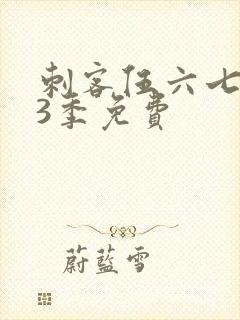 刺客伍六七
3季免費
蔚藍雪